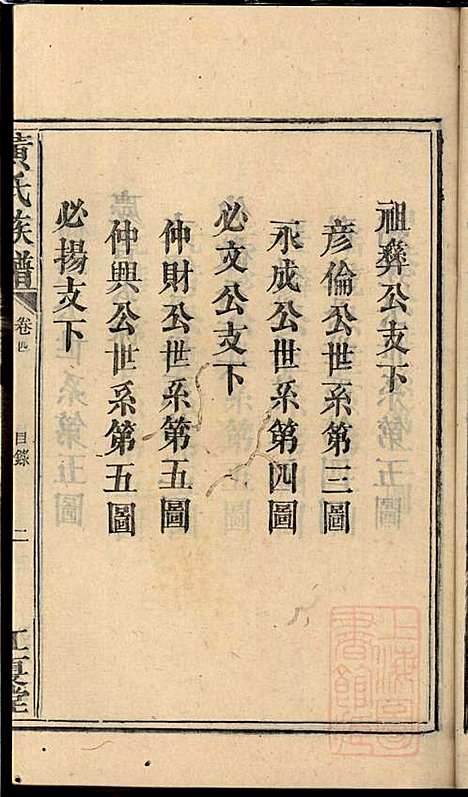 祖彝公支下
彦倫公世系第三圖
永成公世系第四圖
必文公支下
仲財公世系第五圖
仲興公世系第五圖
必揚支下
黃氏族譜
卷四
目錄
二
江夏堂
上海圖書館藏